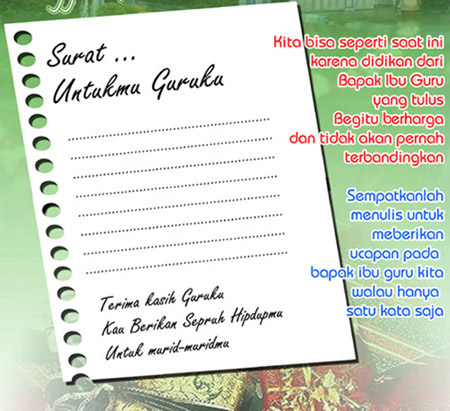 Surat ...
Untukmu Guruku
Terima kasih Guruku
Kau Berikan Sepruh Hipdupmu
Untuk murid-muridmu
Kita bisa seperti saat ini
karena didikan dari
Bapak Ibu Guru
yang tulus
Begitu berharga
dan tidak akan pernah
terbandingkan
Sempatkanlah
menulis untuk
meberikan
ucapan pada
bapak ibu guru kita
walau hanya
satu kata saja